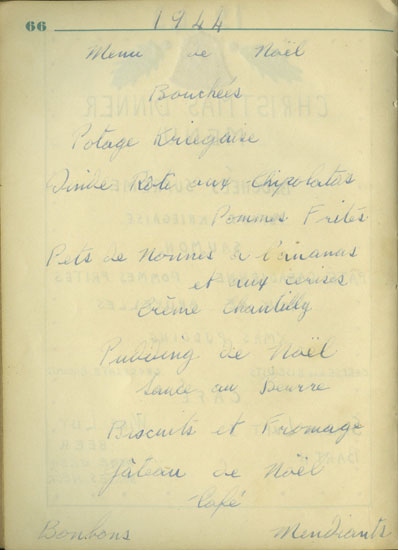 66
1944
Menu de Noël
Bouchées
Potage Kriegaise
Dinde Rôte aux Chipolatas
Pommes Frites
Pets de Nonnes à l'ananas
et aux cerises
Crème Chantilly
Pudding de Noël
Sauce au Beurre
Biscuits et Fromage
Gâteau de Noël
Café
Bonbons Mendiants